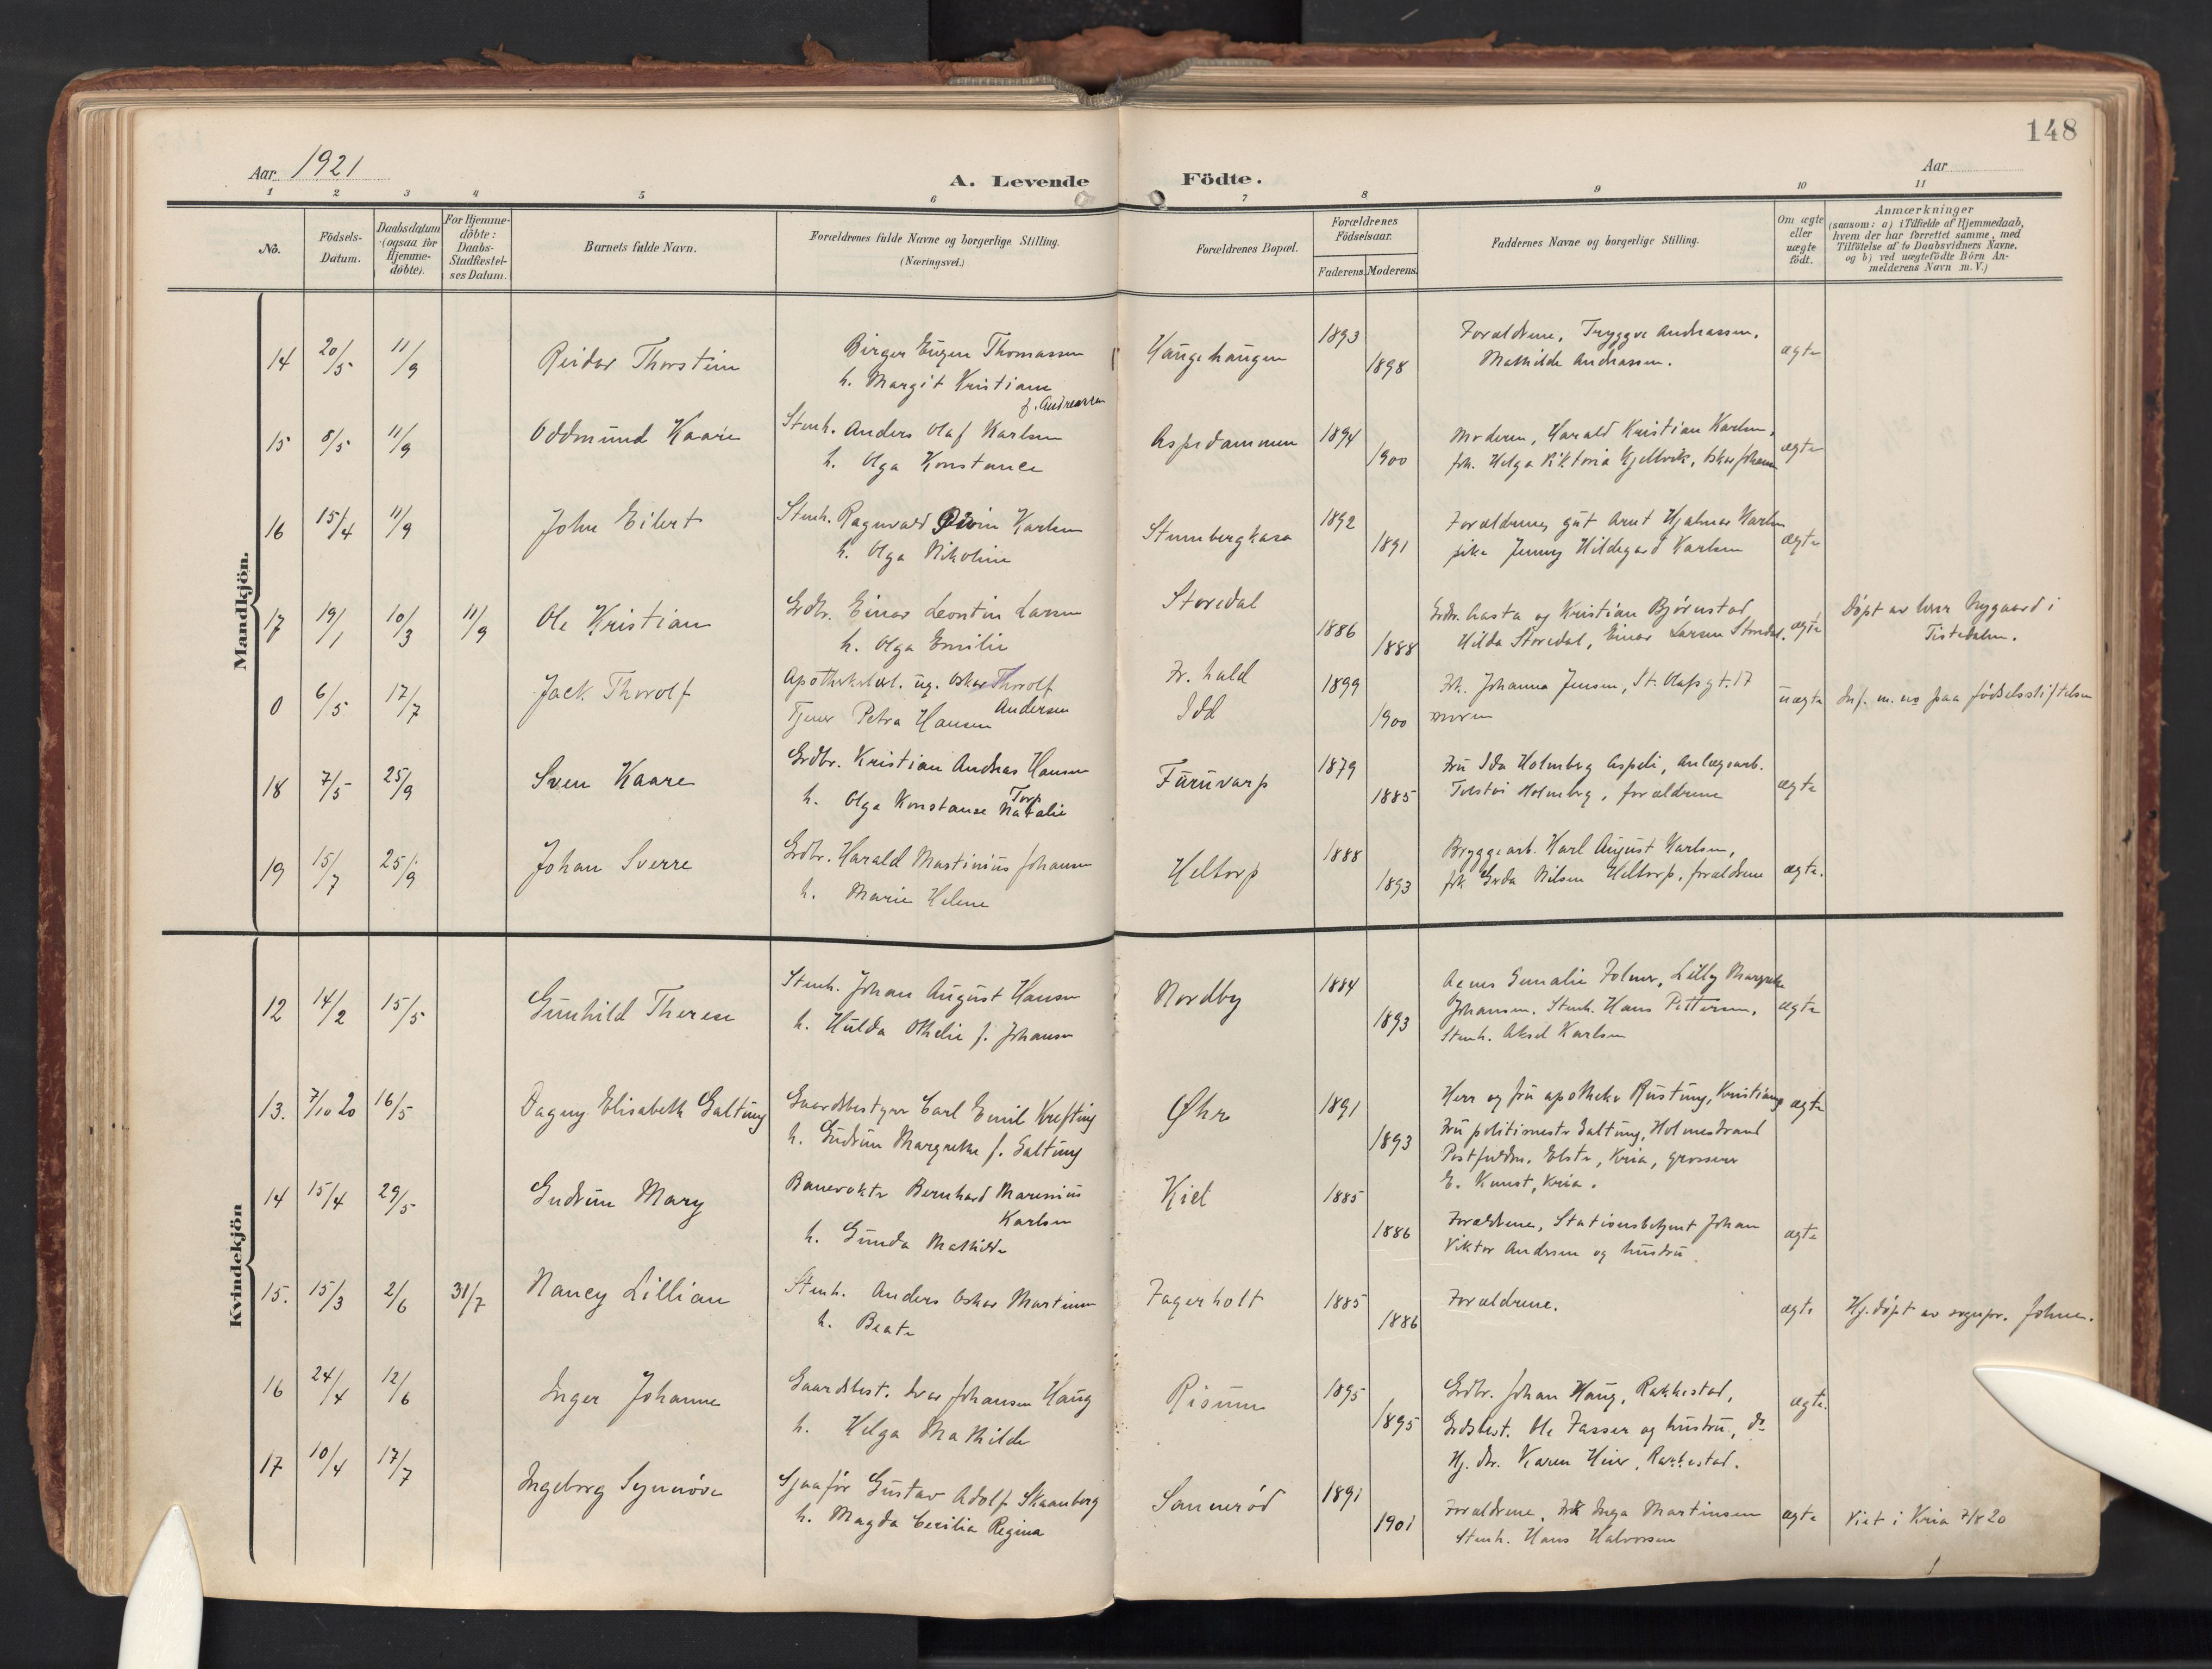 148
Aar 1921
A. Levende
Födte.
Aar
1 2 3 4 5 6 7 8 9 10 11
No.
Födsels-Datum.
Daabsdatum (ogsaa for Hjemme-döbte).
For Hjemme-döbte: Daabs-Stadfæstel-ses Datum.
Barnets fulde Navn.
Forældrenes fulde Navne og borgerlige Stilling.
(Næringsvei.)
Forældrenes Bopæl.
Forældrenes Födselsaar.
Faderens. Moderens.
Faddernes Navne og borgerlige Stilling.
Om ægte eller uægte födt.
Anmærkninger
(saasom: a) i Tilfælde af Hjemmedaab,
hvem der har forrettet samme, med
Tilföielse af to Daabsvidners Navne,
og b) ved uægtefödte Börn An-
melderens Navn m.V.)
Mandkjön.
14 20/5 11/9 Reidar Thorstein Birger Eugen Thomassen Haugehaugen 1893 Forældrene, Tryggve Andreassen, ægte
h. Margit Kristiane 1898 Mathilde Andreassen.
f. Andreassen
15 8/5 11/9 Oddmund Kaare Stenh. Anders Olaf Karlsen Aspedammen 1894 Moderen, Harald Kristian Karlsen, ægte
h. Olga Konstance 1900 frk. Helga Viktoria Kjellvik, Oskar Johansen
16 15/4 11/9 John Eilert Stenh. Ragnvald Karlsen 1892 Forældrene, gut Arnt Hjalmar Karlsen ægte
h. Olga Nikoline 1891 pike Jenny Hildegard Karlsen
17 19/1 10/3 11/9 Ole Kristian Grdbr. Einar Leontin Larsen Storedal 1886 Grdbr. Aasta og Kristian Bjørnstad ægte Døpt av herr Nygaard i
h. Olga Emilie 1888 Hilda Storedal, Einar Larsen Storedal. Tistedalen.
0 6/5 17/7 Jack Thorolf Apothekerl. ug. Oskar Thorolf Andersen Fr. hald 1899 Frk. Johanna Jensen, St. Olafsgt. 17 uægte Inf. m. no paa fødselsstiftelsen
Tjener Petra Hansen Idd 1900 moren
18 7/5 25/9 Sven Kaare Grdbr. Kristian Andreas Hansen Torp Furuvarp 1879 Fru Ida Holmberg Aspeli, Anlægsarb. ægte
h. Olga Konstanse Natalie 1885 Tolstoi Holmberg, forældrene
19 15/7 25/9 Johan Sverre Grdbr. Harald Martinius Johansen Heltorp 1888 Bryggearb. Karl August Karlsen, ægte.
h. Marie Helene 1893 frk Gerda Nilsen Heltorp, forældrene
Kvindekjön
12 14/2 15/5 Gunhild Therese Stenh. Johan August Hansen Nordby 1884 Agnes Lilly Margrethe ægte
h. Hulda Othelie f. Johansen 1893 Johansen, Stenh. Hans Pettersen,
Stenh. Aksel Karlsen
13. 7/10 20 16/5 Dagny Elisabeth Galtung Gaardsbestyrer Carl Emil Krefting Øhre 1891 Herr og fru apotheker Rustung, Kristiania ægte
h. Gudrun Margrethe f. Galtung 1893 Fru politimester Galtung, Holmestrand
Postfuldm. Elster, Kria, grosserer
E. Kunst, Kria.
14 15/4 29/5 Gudrun Mary Banevokter Bernhard Marenius Karlsen Kiel 1885
h. Gunda Mathilde 1886 Forældrene, Stationsbetjent Johan ægte
Viktor Andersen og hustru.
15. 15/3 2/6 31/7 Nancy Lillian Stenh. Anders Oskar Martinsen Fagerholt 1885 Forældrene. ægte Hj. døpt av sognepr. Johne.
h. Beate 1886
16 24/4 12/6 Inger Johanne Gaardsbest. Ivar Johansen Haug Risum 1895 Grdbr. Johan Haug, Rakkestad, ægte.
h. Helga Mathilde 1895 Grdsbest. Ole Fasser og hustru, do
Hj. dtr. Karen Heier, Rakkestad.
17 10/4 17/7 Ingeborg Synnøve Sjaafør Gustav Adolf Skaanberg Sannerød 1891 Forældrene, Frk Inga Martinsen ægte Viet i Kria 7/8 20
h. Magda Cecilia Regina 1901 Stenh. Hans Halvorsen